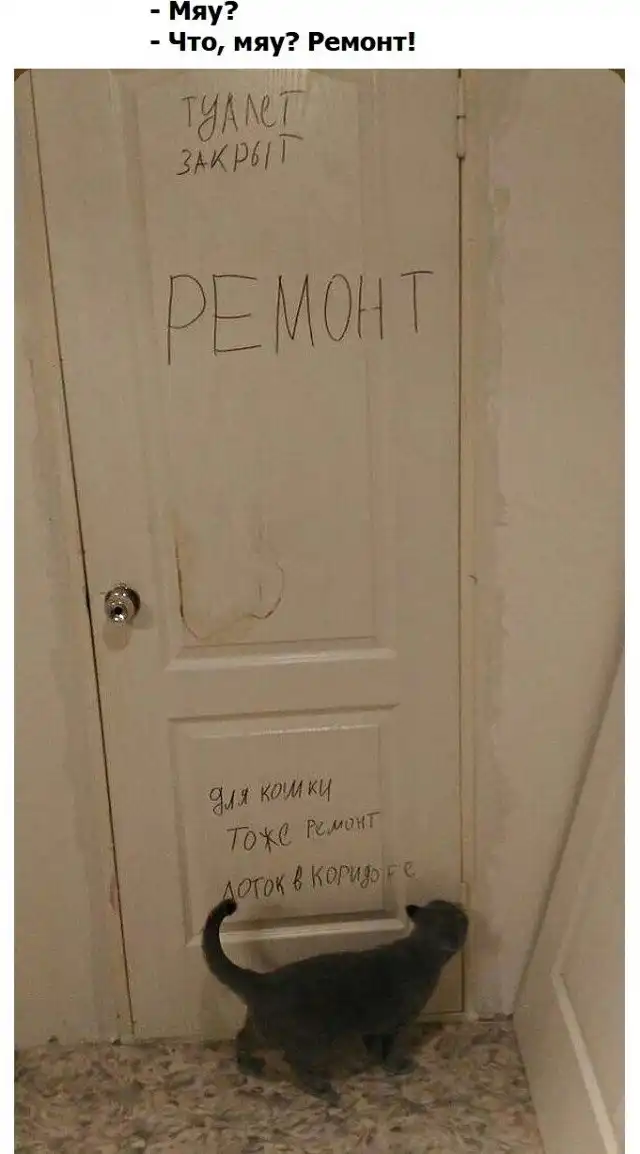 - Мяу?
- Что, мяу? Ремонт!
ТУАЛЕТ
ЗАКРЫТ
РЕМОНТ
для кошки
тоже ремонт
лоток в коридоре